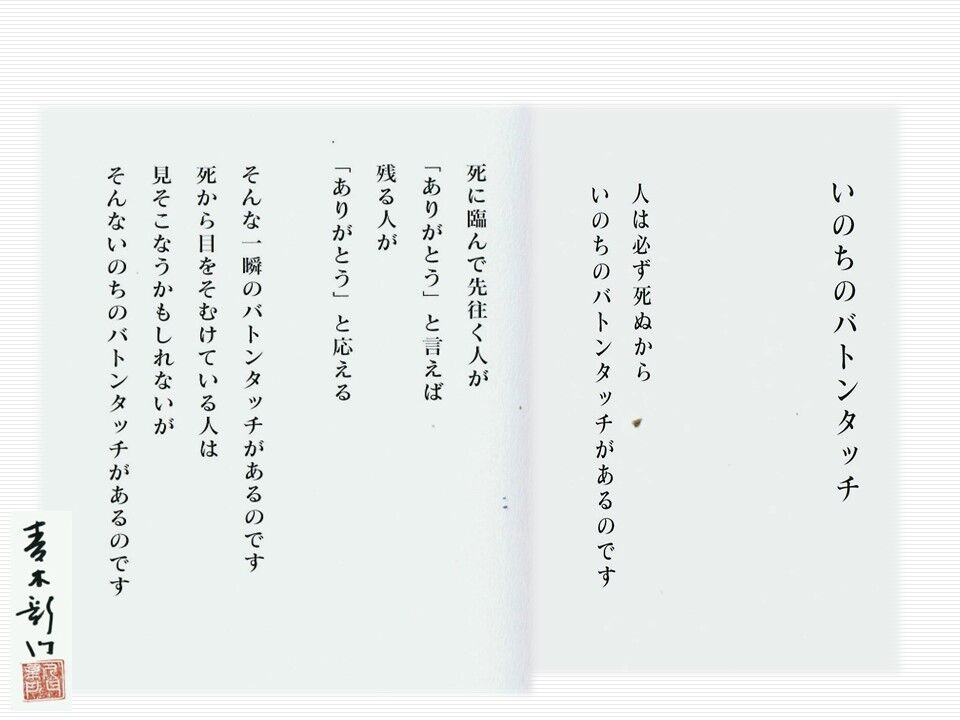 いのちのバトンタッチ
人は必ず死ぬから
いのちのバトンタッチがあるのです
死に臨んで先往く人が
「ありがとう」と言えば
残る人が
「ありがとう」と応える
そんな一瞬のバトンタッチがあるのです
死から目をそむけている人は
見そこなうかもしれないが
そんないのちのバトンタッチがあるのです
青木新門